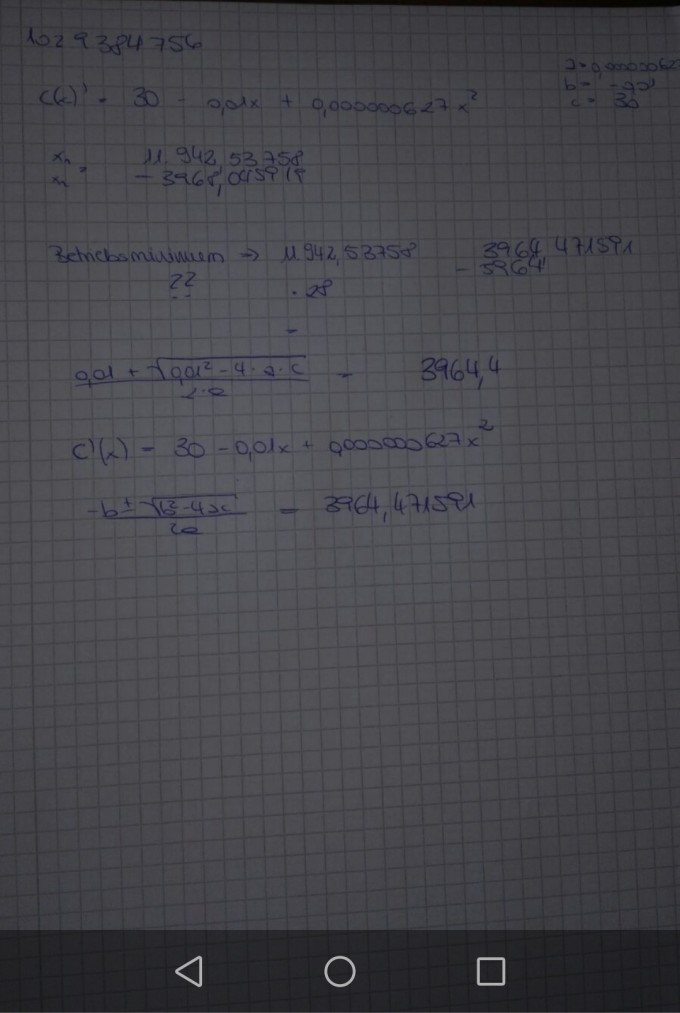 1029384756
a = 0,000000627
b = -0,01
c = 30
C(x)' = 30 - 0,01x + 0,000000627x²
x₁ = 11.942,53758
x₂ - 3968,045919
Betriebsminimum => 11942,53758 3964,471591
?? · 28 - 3964
=
0,01 + √0,01² - 4 · a · c / 2 · a = 3964,4
C'(x) = 30 - 0,01x + 0,000000627x²
-b ± √b² - 4ac / 2a = 3964,471591